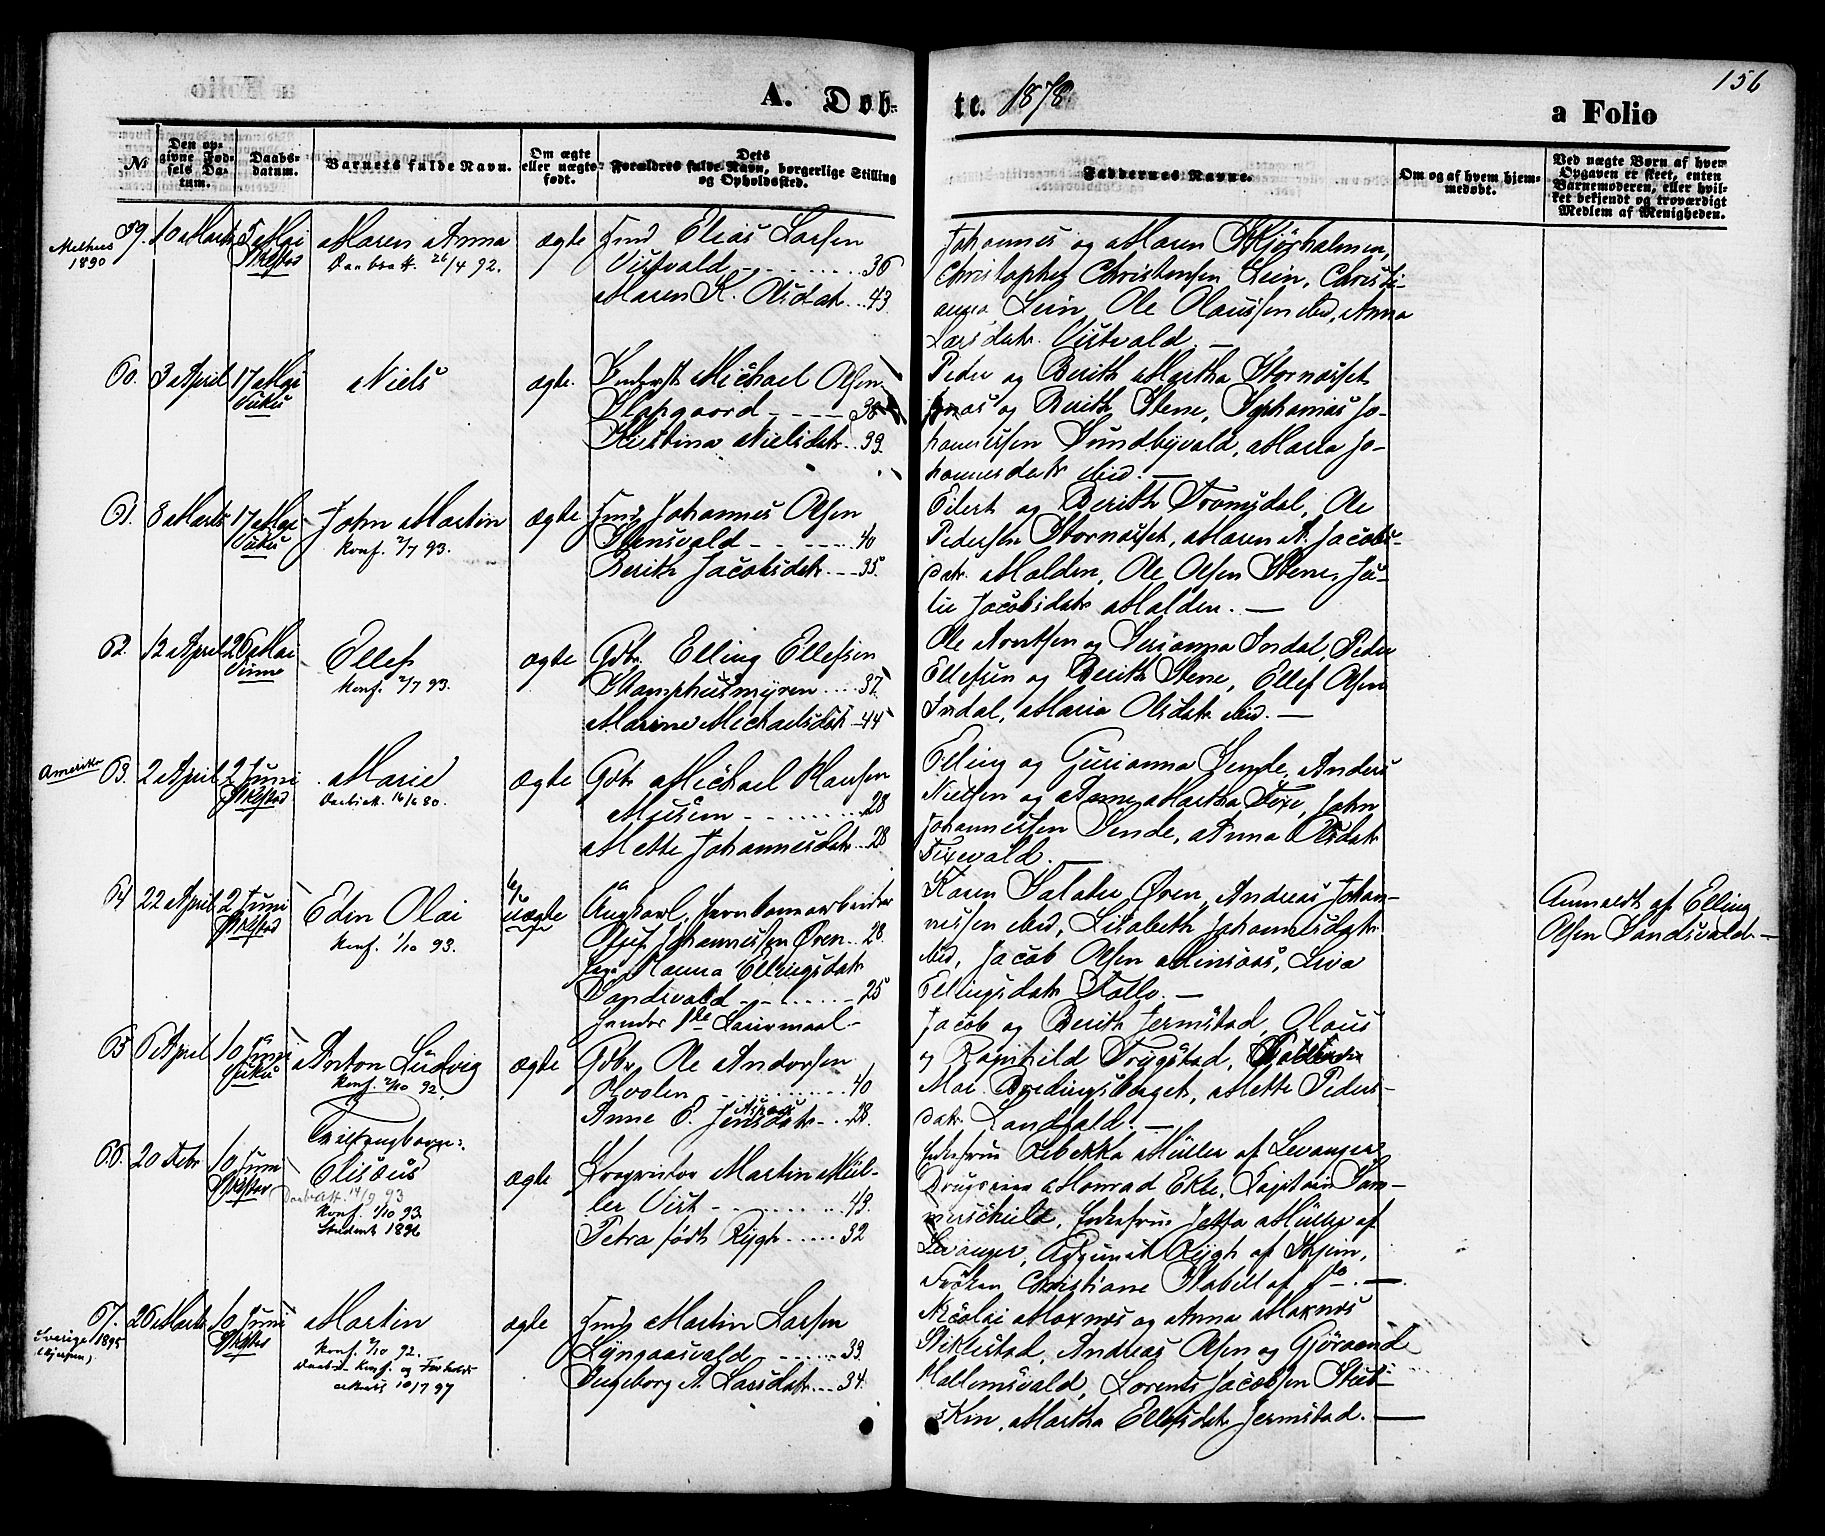 156
A. Døb-
te. 1878
a Folio
№
Den op-
givne Fød-
sels Da-
tum.
Daabs-
datum.
Barnets fulde Navn.
Om ægte
eller uægte
født.
Dets
Forældres fulde Navn, borgerlige Stilling
og Opholdssted.
Faddernes Navne.
Om og af hvem hjem-
medøbt.
Ved uægte Børn af hvem
Opgaven er skeet, enten
Barnemoderen, eller hvil-
ket bekjendt og troværdigt
Medlem af Menigheden.
Melhus
1890
59. 10 Marts 5 Mai
Stiklestad
Maren Anna
Daabsatt. 26/4 92.
ægte
Inds Elias Larsen
Vistvald 36
Maren K. Olsdatr 43
Johannes og Maren Kjørholmen,
Christopher Christensen Lein, Christi-
anna Lein, Ole Olaussen ibid, Anna
Larsdatr. Vistvald. —
60. 3 April 17 Mai
Vuku
Niels
ægte.
Michael Olsen
Klapgaard 38
Kristina Nielsdatr 39
Peder og Berith Martha Stornæsset
og Berith Stene, Sephanias Jo-
hannessen Sundbyvald, Maria Jo-
hannesdatr ibid. —
61. 8 Marts 17 Mai
Vuku
John Martin
Konf. 2/7 93.
ægte
Inds Johannes Olsen
Stensvald 40
Berith Jacobsdatr 35.
Eilert og Berith Tromsdal, Ole
Pedersen Stornæsset, Maren A. Jacobs-
datr. Molden, Ole Olsen Stene, Ju-
lie Jacobsdatr Molden. —
62. 12 April 26 Mai
Vinne
Ellef
Konf. 2/7 93.
ægte
Gdbr. Elling Ellefsen
Stamphusmyren 37
Marine Michaelsdatr 44
Ole Arntsen og Gurianna Indal, Peder
Ellefsen og Berith Stene, Ellef Olsen
Indal, Maria Olsdatr ibid. —
Amerika
63. 2 April 2 Juni
Stiklestad
Marie
Daabsatt. 16/6 80.
ægte
Gdbr Michael Hansen
28
Mette Johannesdatr 28
Elling og Gurianna Sende, Anders
Nielsen og Anne Martha Foxe, John
Johannessen Sende, Anna Olsdatr
—
64 22 April 2 Juni
Stiklestad
Edin Olai
Konf. 1/10 93.
uægte
Ungkarl, Jernbanearbeider
Oluf Johannessen Øren 28.
Pige Hanna Ellingsdatr
Sandsvald 25
hendes 1ste Leiermaal.
Karen Øren, Andreas Johan-
nessen ibid, Lisabeth Johannesdatr
ibid, Jacob Olsen Minsaas, Lisa
Ellingsdatr Follo. —
Anmeldt af Elling
Olsen Sandsvald. —
65 6 April 10 Juni
Vuku
Anton Ludvig
Konf. 2/10 92.
ægte
Gdbr Ole Andersen
Hvolen 40
Anne E. Jensdatr 28.
Jacob og Berith Jermstad, Olaus
og Ragnhild Trygstad,
Bredingsberget, Mette Peders-
datr. Landfald. —
Tvillingbarn:
66. 20 Febr 10 Juni
Stiklestad
Elisæus
Daabsatt. 14/9 93
Konf. 1/10 93.
Student 1896
ægte
Martin Mül-
ler Vist 43.
Petra født Rygh 32
Enkefrue Rebekka Müller af Levanger,
Monrad Ekle, Captain Som-
merschield, Enkefrue Jetta Müller af
Levanger, Rygh af Skjern,
Frøken Christiane Stabell af Do. —
Sverige 1895
67. 26 Marts 10 Juni
Martin
Konf. 2/10 92.
10/7 97
ægte
Inds Martin Larsen
Lyngaasvald 33.
Ingeborg A. Larsdatr 34.
Nicolai Moxnæs og Anna Moxnæs
Stiklestad, Andreas Olsen og Gjøraand
Hallemsvald, Lorents Jacobsen Stub-
skin, Martha Ellefsdatr Jermstad. —